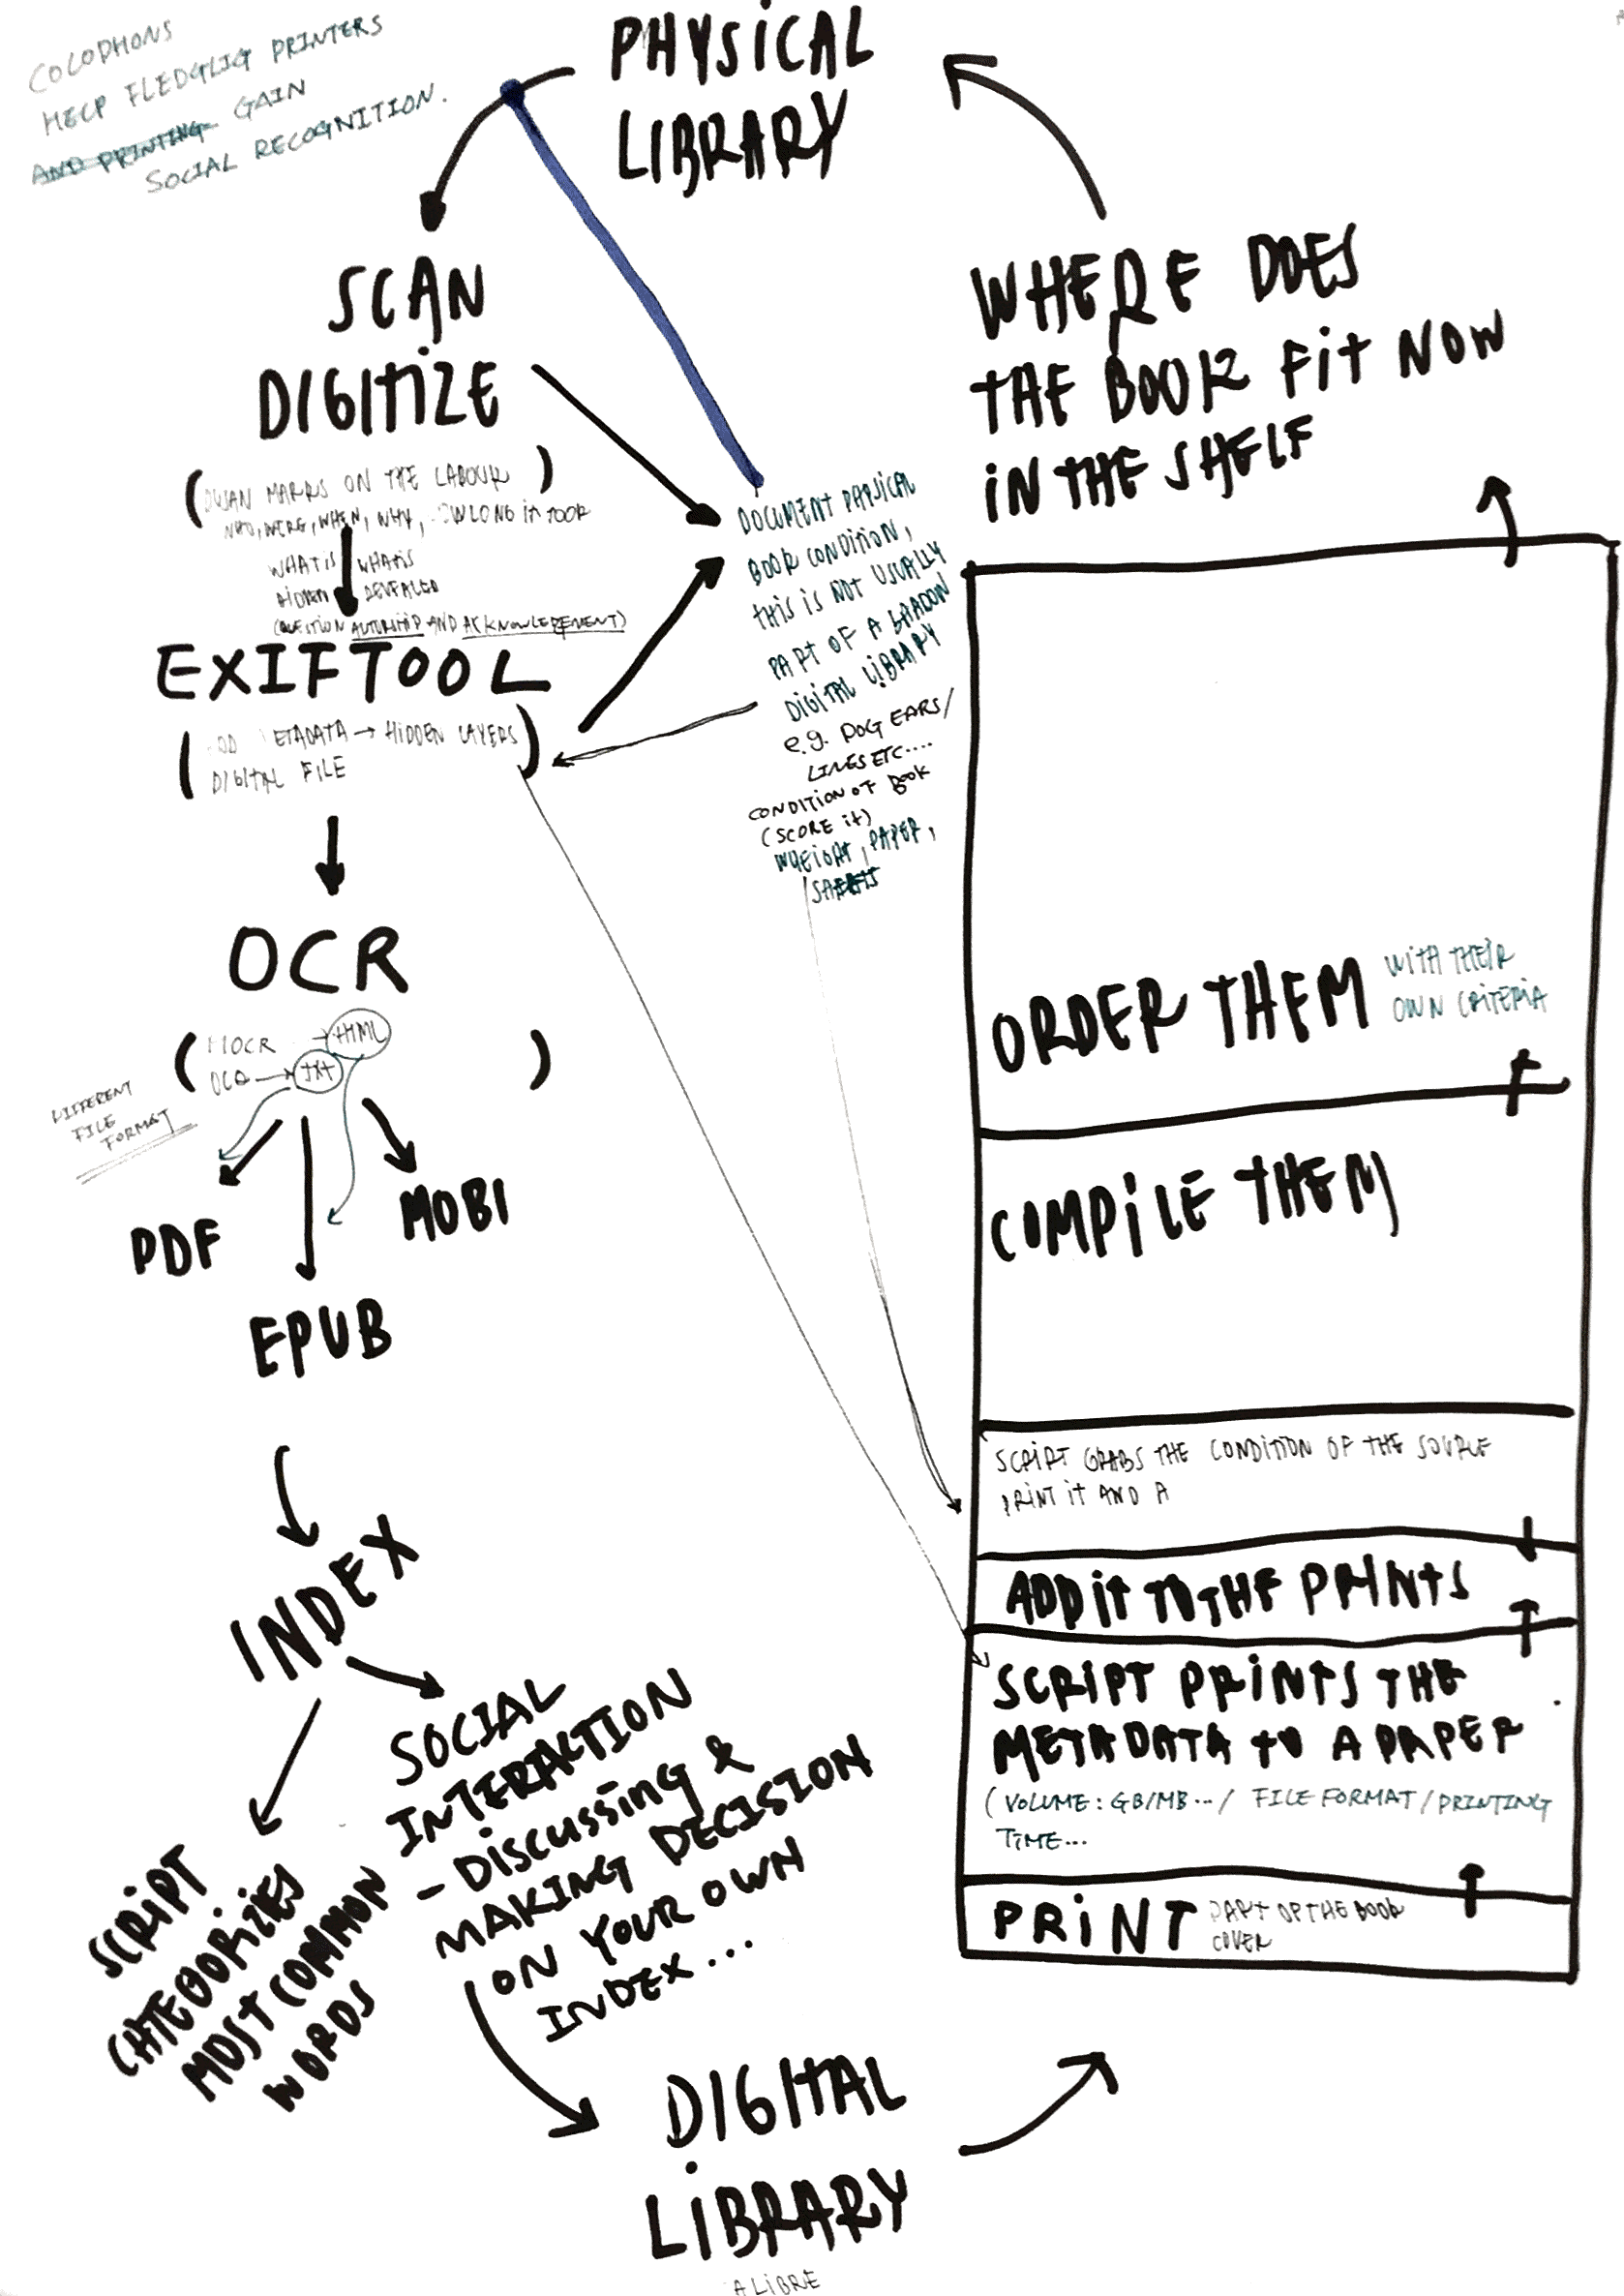 COLOPHONS
HELP FLEDGLIG PRINTERS
AND PRINTING GAIN
SOCIAL RECOGNITION.
PHYSICAL
LIBRARY
SCAN
DIGITIZE
( MARKS ON THE LABOUR )
WHEN, WHY, LONG it TOOK
WHAT is WHAT is
HIDDEN REVEALED
(QUESTION AUTORSHIP AND ACKNOWLEDEMENT)
EXIFTOOL
( METADATA → HIDDEN LAYERS )
DIGITAL FILE
OCR
( HOCR → HTML )
OCR → txt
DIFFERENT
FILE
FORMAT
PDF
EPUB
MOBI
INDEX
SOCIAL
INTERACTION
- Discussing &
MAKING DECISION
ON YOUR OWN
INDEX...
SCRIPT
CATEGORIZIES
MOST COMMON
WORDS
DIGITAL
LIBRARY
ALIBRE
DOCUMENT PHYSICAL
BOOK CONDITION,
THIS IS NOT USUALLY
PART OF A SHADOW
DIGITAL LIBRARY
e.g. DOG EARS/
LINES ETC....
CONDITION OF BOOK
(SCORE it)
WHEIGHT, PAPER,
WHERE DOES
THE BOOK FIT NOW
IN THE SHELF
ORDER THEM WITH THEIR
OWN CRITERIA
COMPILE THEM
SCRIPT GRABS THE CONDITION OF THE SOURCE
PRINT IT AND A
ADD it TO THE PRINTS
SCRIPT PRINTS THE
METADATA to A PAPER
(VOLUME: GB/MB.../ FILE FORMAT/PRINTING
TIME...
PRINT PART OF THE BOOK
COVER